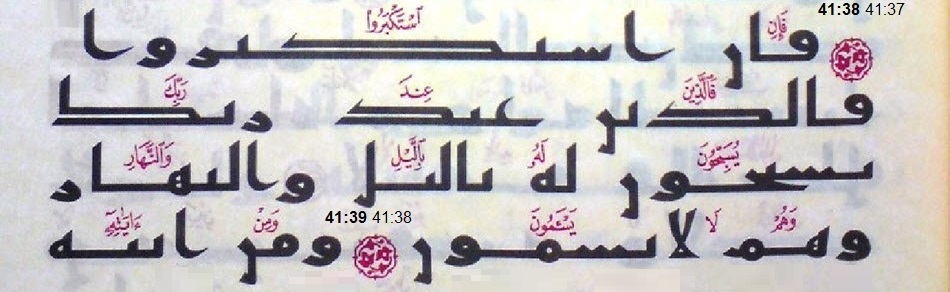 41:38 41:37
فَإِنِ ٱسْتَكْبَرُوا۟
فان استكبروا
فَٱلَّذِينَ عِندَ رَبِّكَ
فالذين عند ربك
يُسَبِّحُونَ لَهُۥ بِٱلَّيْلِ وَٱلنَّهَارِ
يسبحون له باليل والنهار
وَهُمْ لَا يَسْـَٔمُونَ 41:39 41:38 وَمِنْ ءَايَـٰتِهِۦ
وهم لا يسمون ومن ايته